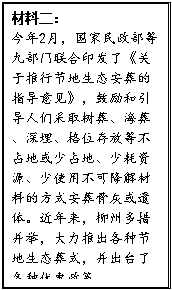 材料二：
今年2月，国家民政部等
九部门联合印发了《关
于推行节地生态安葬的
指导意见》，鼓励和引
导人们采取树葬、海葬
、深埋、格位存放等不
占地或少占地、少耗资
源、少使用不可降解材
料的方式安葬骨灰或遗
体。近年来，柳州多措
并举，大力推出各种节
地生态葬式，并出台了
各种优惠政策